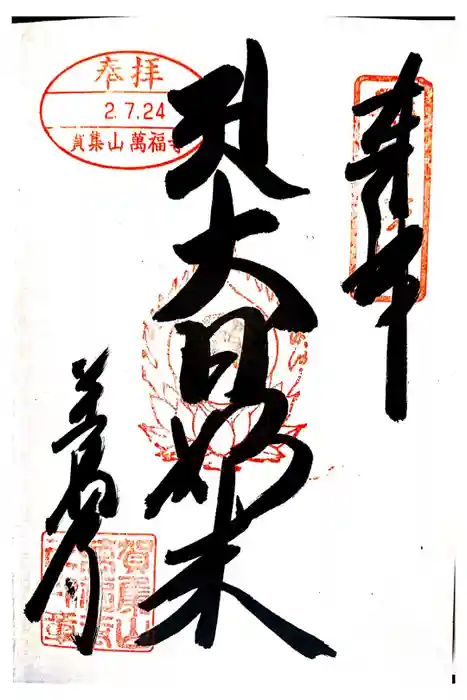 奉拝
2.7.24
賀集山萬福寺
奉拝
大日如来
萬福寺